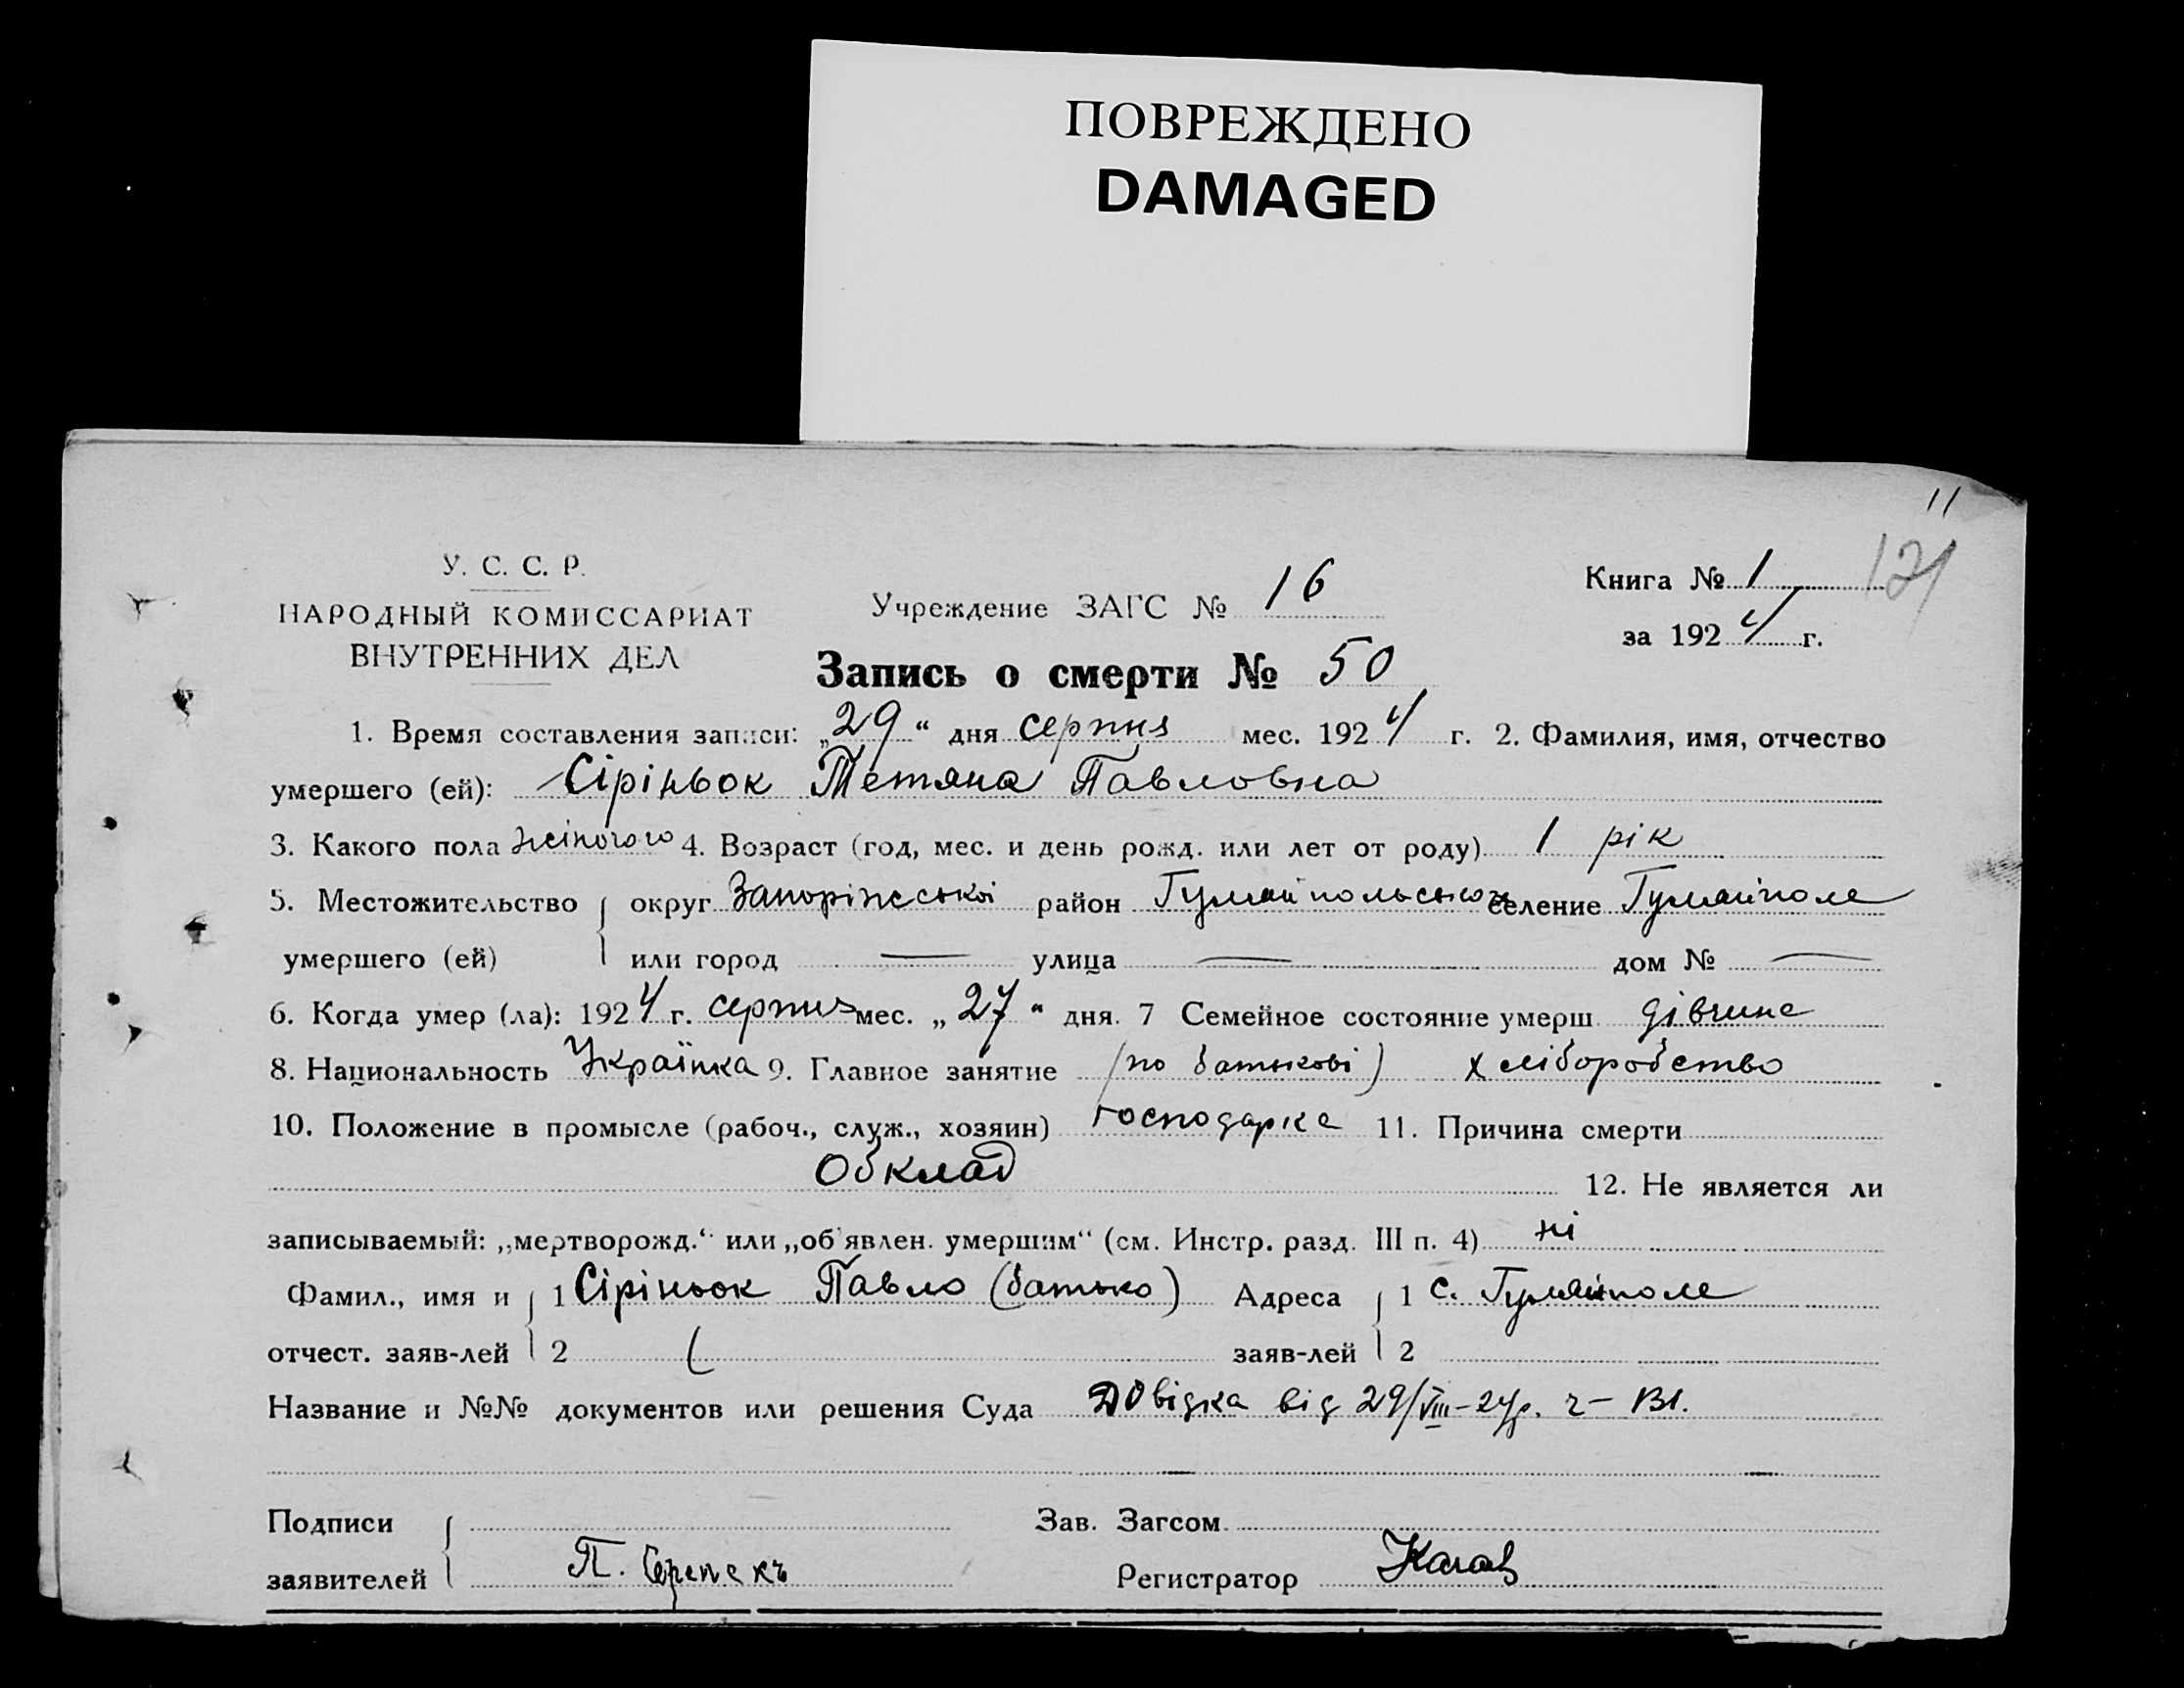 ПОВРЕЖДЕНО
DAMAGED
11
У. С. С. Р.
НАРОДНЫЙ КОМИССАРИАТ
ВНУТРЕННИХ ДЕЛ
Учреждение ЗАГС № 16
Книга № 1 121
за 1924 г.
Запись о смерти № 50
1. Время составления записи: „29“ дня серпня мес. 1924 г. 2. Фамилия, имя, отчество
умершего (ей): Сіріньок Тетяна Павловна
3. Какого пола жіночого 4. Возраст (год, мес. и день рожд. или лет от роду) 1 рік
5. Местожительство округ Запоріжської район Гуляйпольського селение Гуляйполе
умершего (ей) или город — улица — дом № —
6. Когда умер (ла): 1924 г. серпня мес. „27“ дня. 7 Семейное состояние умерш. дівчина
8. Национальность Українка 9. Главное занятие (по батькові) хліборобство
10. Положение в промысле (рабоч., служ., хозяин) господарка 11. Причина смерти
Обклад 12. Не является ли
записываемый: „мертворожд.“ или „об'явлен. умершим“ (см. Инстр. разд. III п. 4) ні
Фамил., имя и 1 Сіріньок Павло (батько) Адреса 1 с. Гуляйполе
отчест. заяв-лей 2 заяв-лей 2
Название и №№ документов или решения Суда Довідка від 29/VIII-24р. ч-
Подписи Зав. Загсом
заявителей П. Регистратор